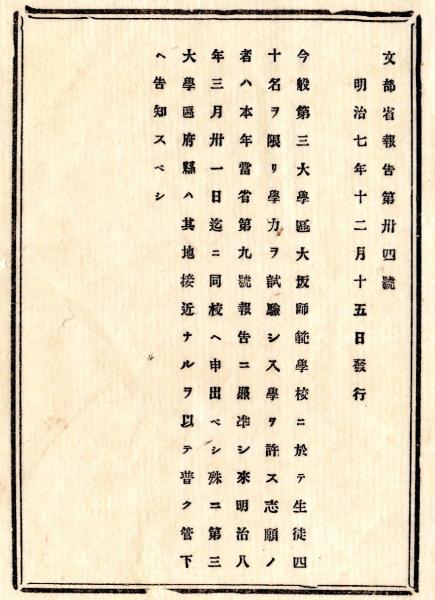 文部省報告第卅四號
明治七年十二月十五日發行
今般第三大學區大坂師範學校ニ於テ生徒四
十名ヲ限リ學力ヲ試驗シ入學ヲ許ス志願ノ
者ハ本年當省第九號報告ニ照準シ來明治八
年三月卅一日迄ニ同校ヘ申出ベシ殊ニ第三
大學區府縣ハ其地接近ナルヲ以テ普ク管下
ヘ告知スベシ